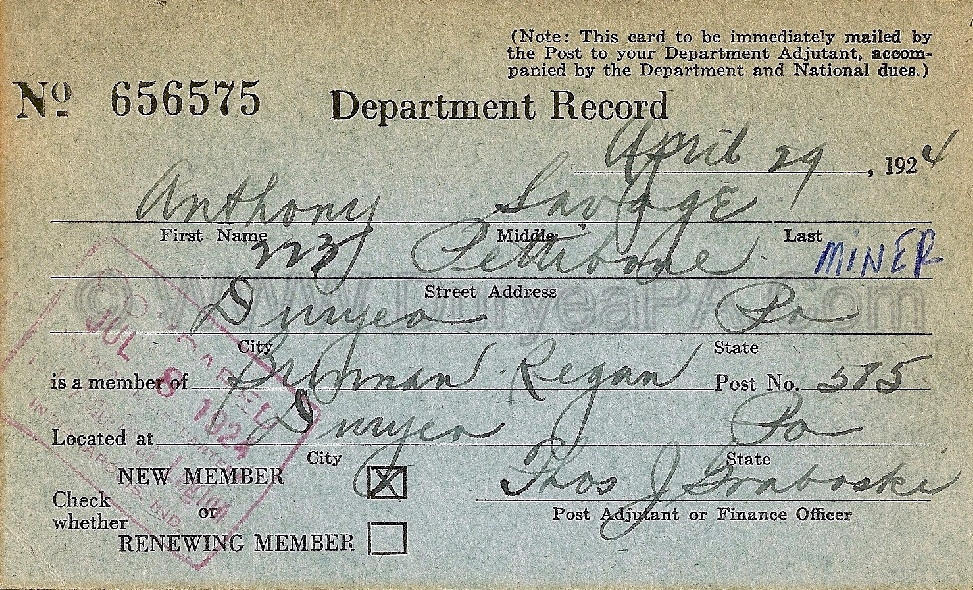 (Note: This card to be immediately mailed by
the Post to your Department Adjutant, accom-
panied by the Department and National dues.)
Nº 656575 Department Record
April 29, 1924
Anthony Savage
First Name Middle Last
223 Pettibone MINER
Street Address
© www.DuryeaPA.com
Duryea Pa
City State
is a member of Brennan Regan Post No. 585
Located at Duryea Pa
City State
NEW MEMBER
Check
whether
or
RENEWING MEMBER
Thos J Graboski
Post Adjutant or Finance Officer
JUL 8 1924